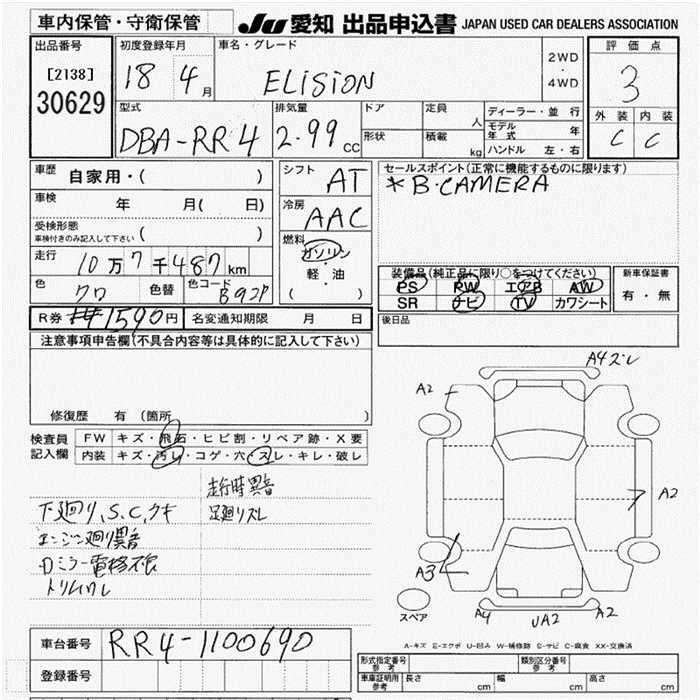 車内保管・守衛保管
JU 愛知 出品申込書 JAPAN USED CAR DEALERS ASSOCIATION
出品番号
[2138]
30629
初度登録年月
18 4月
車名・グレード
ELISION
2WD
・
4WD
評価点
3
外装 内装
C C
型式
DBA-RR4
排気量
2.99 CC
ドア
形状
定員 人
積載 kg
ディーラー・並行
モデル年式 年
ハンドル 左・右
車歴
自家用・( )
車検 年 月( 日)
受検形態
車検付きのみ記入して下さい ( )
走行
10万7千487km
色 クロ 色替 色コード B92P
シフト
AT
冷房
AAC
燃料
ガソリン
・
軽・油
( )
セールスポイント(正常に機能するものに限ります)
*B・CAMERA
装備品(純正品に限り○をつけてください)
PS PW エアB AW
SR ナビ TV カワシート
新車保証書
有・無
R券 #1590円 名変通知期限 月 日
後日品
注意事項申告欄(不具合内容等は具体的に記入して下さい)
修復歴 有 (箇所 )
検査員
記入欄
FW キズ・飛石・ヒビ割・リペア跡・X要
内装 キズ・汚レ・コゲ・穴・スレ・キレ・破レ
走行時異音
下廻り、S.C.クキ
足廻りズレ
エンジン廻り異音
Dミラー電格不良
トリム
A4ズレ
A2
A2
A3
A4
UA2
A2
スペア
A-キズ E-エクボ U-凹み W-補修跡 S-サビ C-腐食 XX-交換済
車台番号 RR4-1100690
登録番号
形式指定番号
参考
類別区分番号
参考
車庫証明用
参考
長さ cm 幅 cm 高さ cm